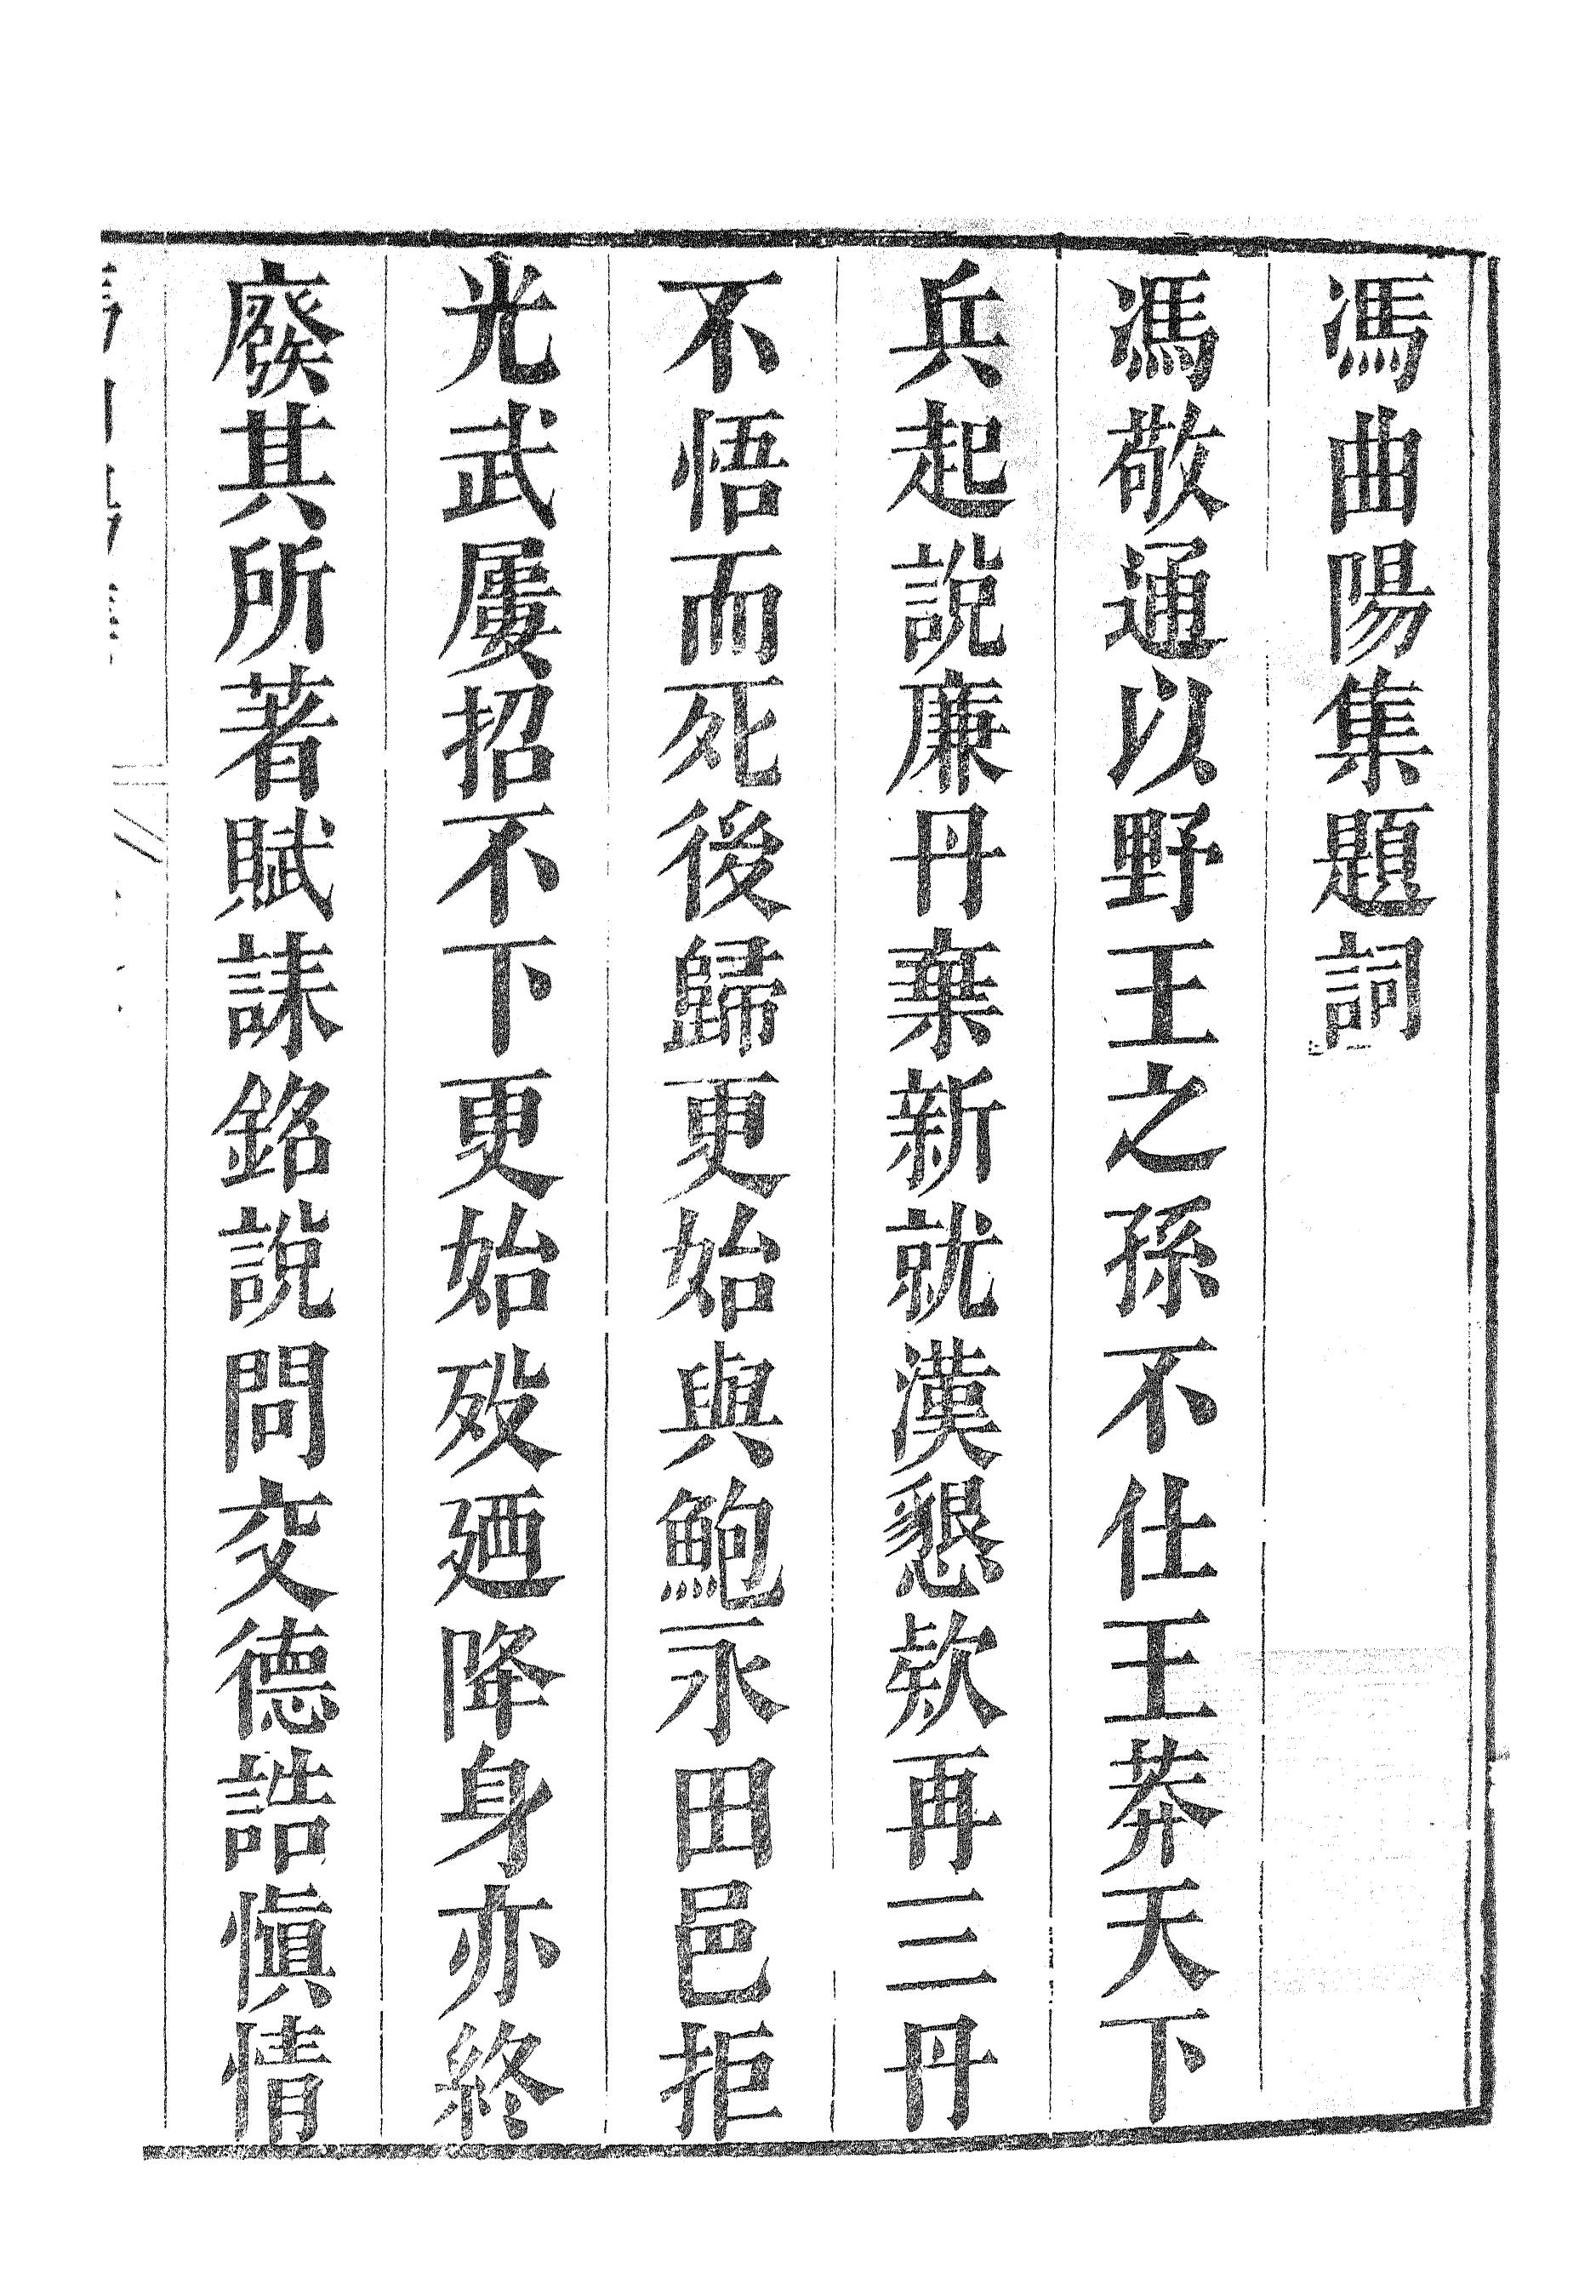 馮曲陽集題詞
馮敬通以野王之孫不仕王莽天下
兵起說廉丹棄新就漢懇欵再三丹
不悟而死後歸更始與鮑永田邑拒
光武屢招不下更始歿廼降身亦終
廢其所著賦誄銘說問交德誥慎情